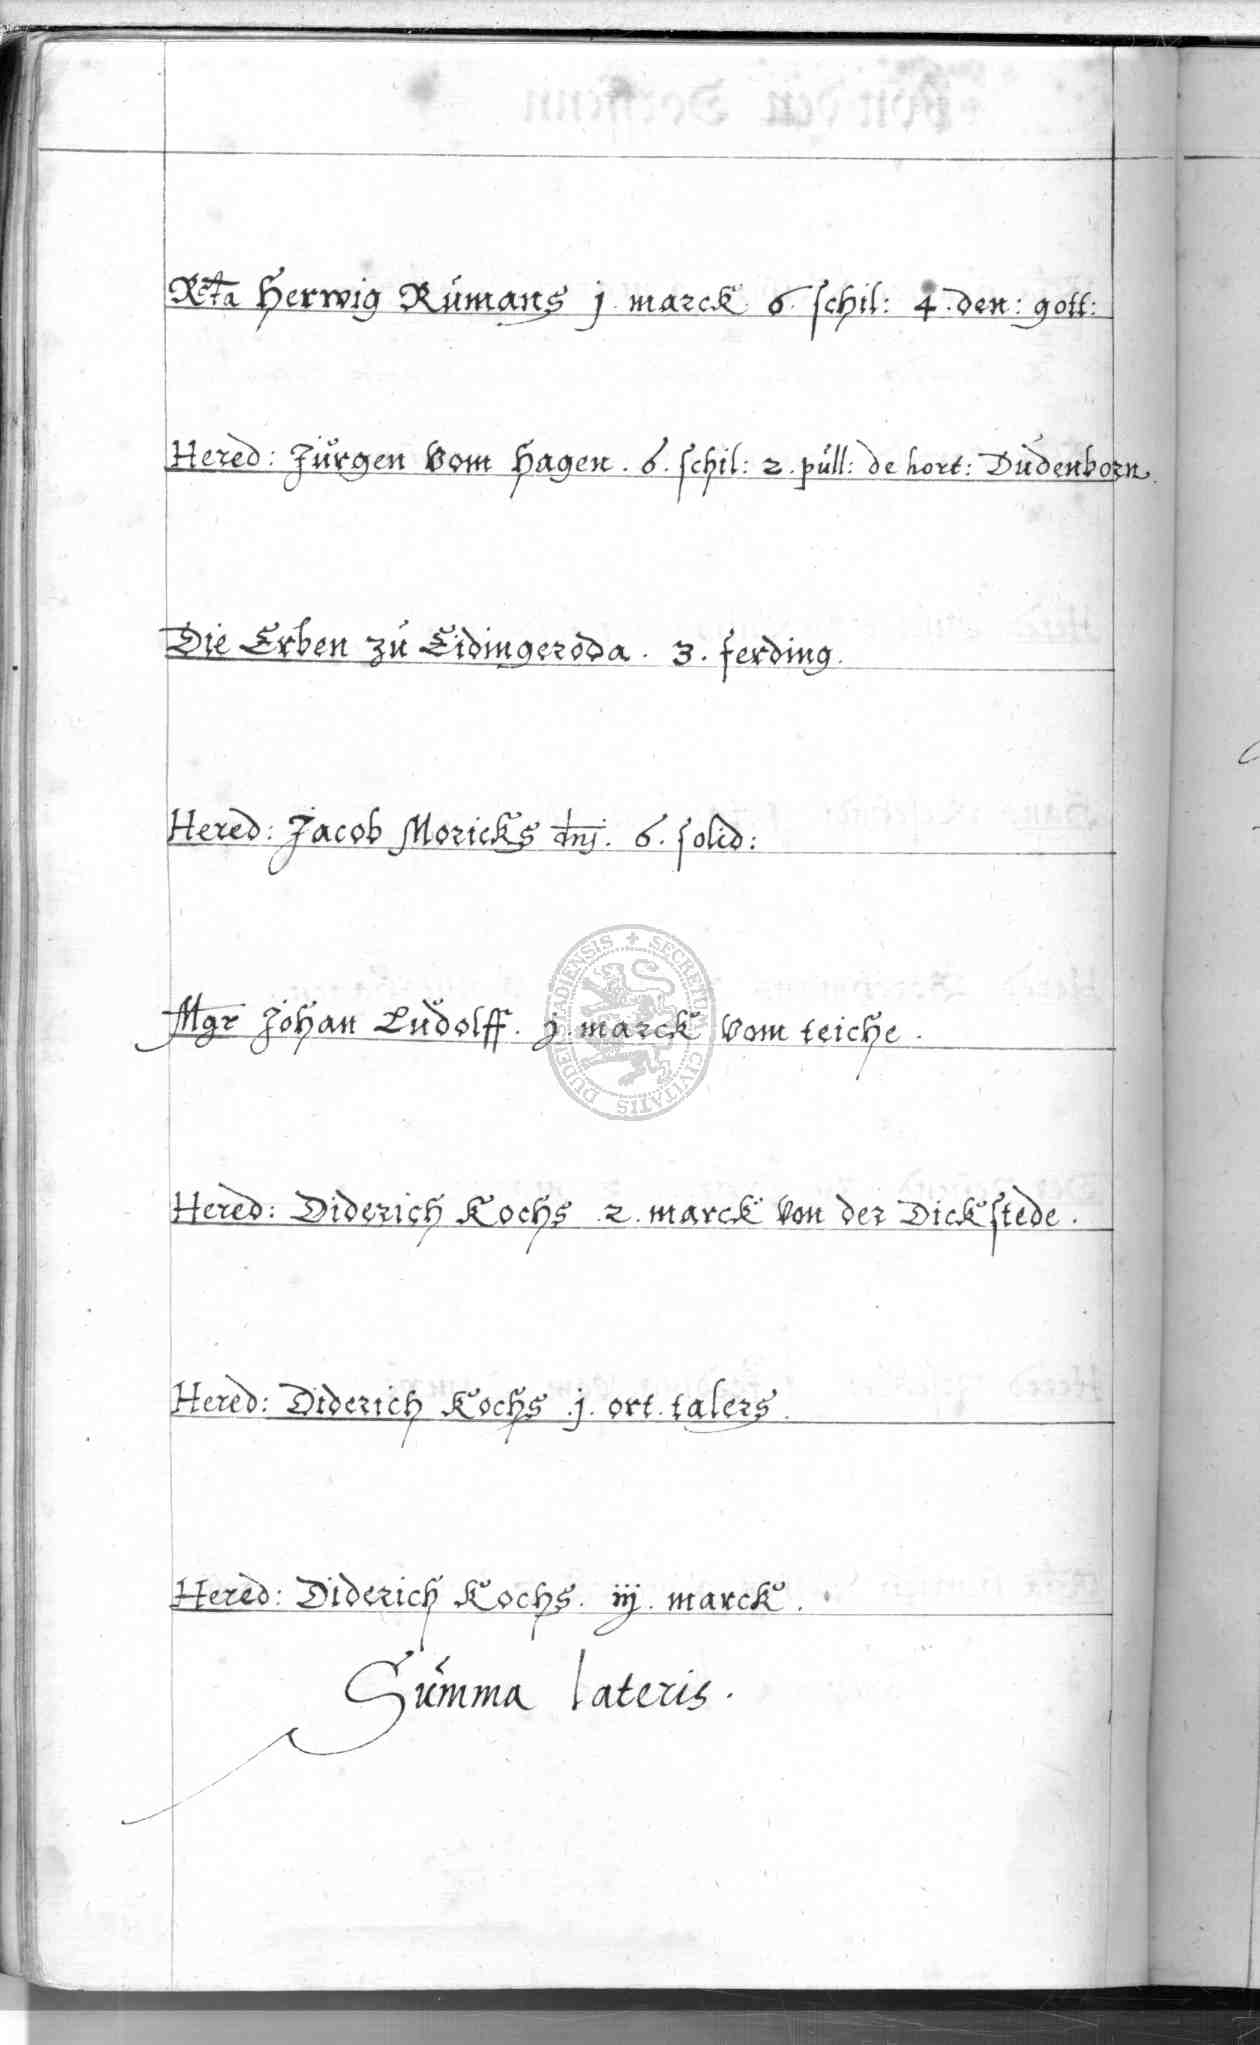 Rcta Herwig Rümans j. marck 6. schil: 4. den: gott:
Hered: Jürgen Vom Hagen. 6. schil: 2. püll: de hort: Düdenborn.
Die Erben zü Eidingeroda. 3. ferding.
Hered: Jacob Moricks dnj. 6. solid:
Mgr Johan Lüdolff. j. marck Vom teiche.
Hered: Diderich Kochs 2. marck Von der Dickstede.
Hered: Diderich Kochs .j. ort. talers.
Hered: Diderich Kochs. iij. marck.
Summa lateris.